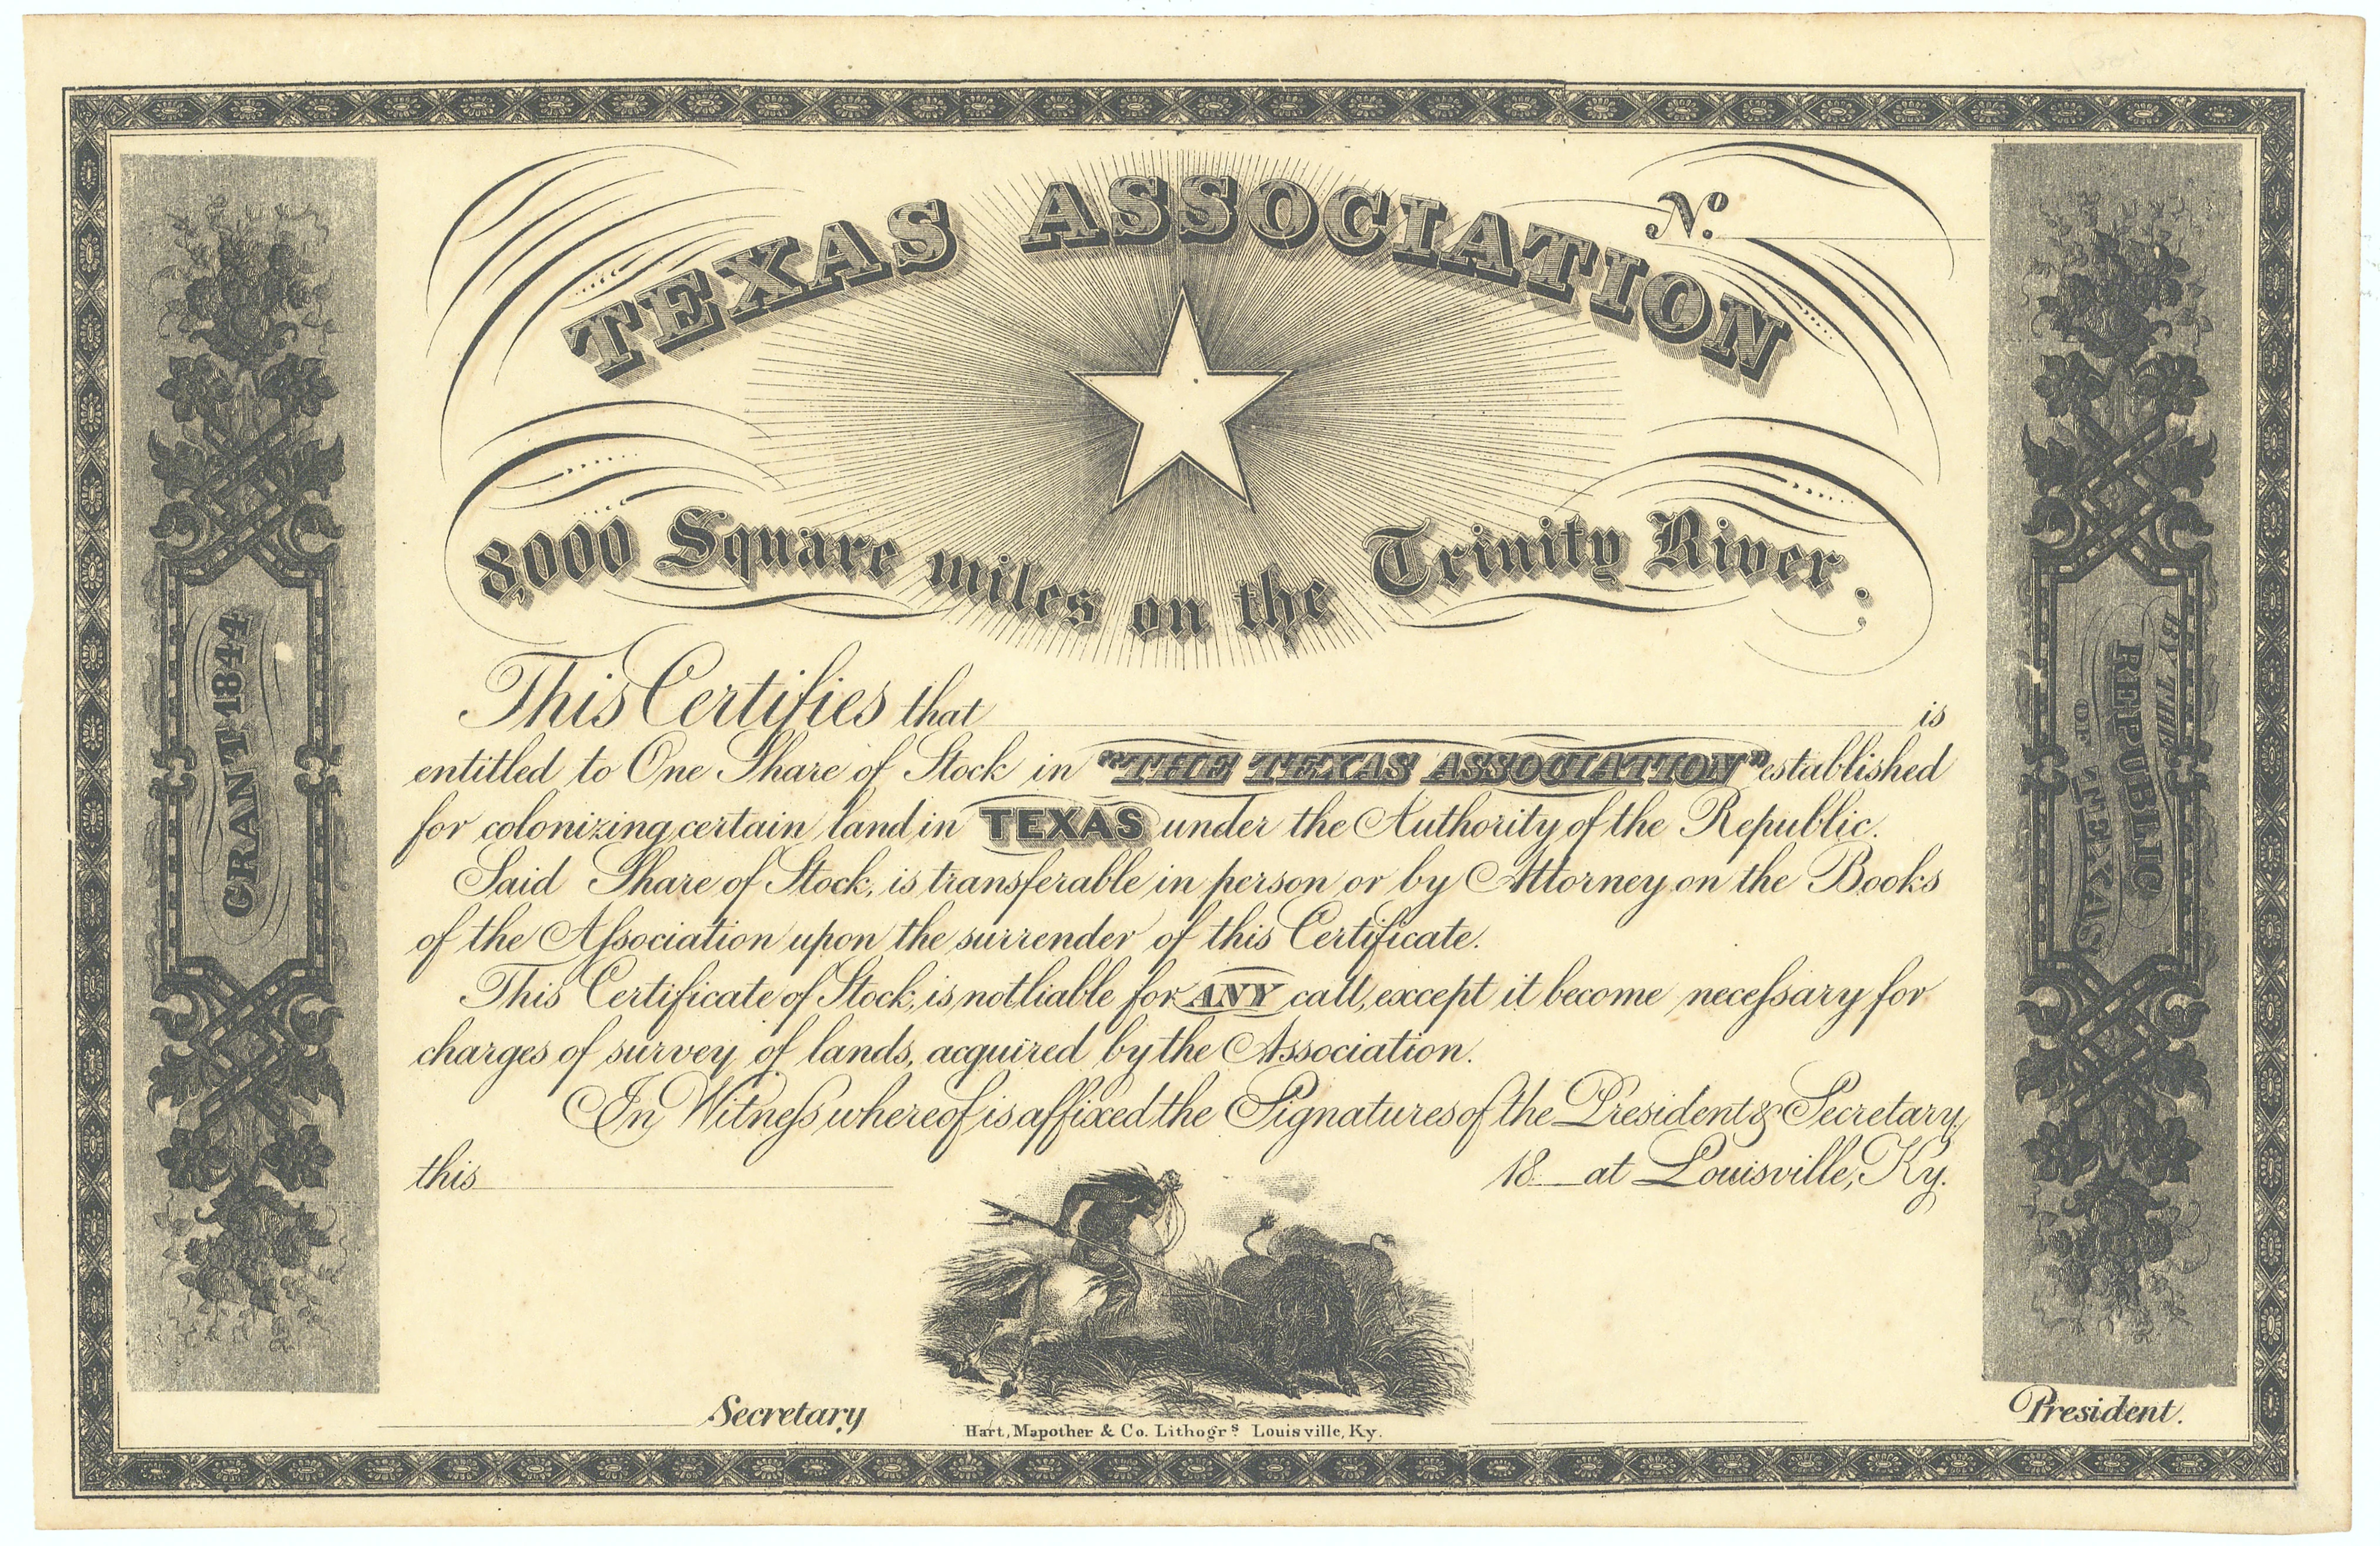 TEXAS ASSOCIATION
No.
8,000 Square miles on the Trinity River.
GRANT 1844
BY THE
REPUBLIC
OF
TEXAS
This Certifies that is
entitled to One Share of Stock in "THE TEXAS ASSOCIATION" established
for colonizing certain land in TEXAS under the Authority of the Republic.
Said Share of Stock, is transferable in person or by Attorney on the Books
of the Aſsociation upon the surrender of this Certificate.
This Certificate of Stock, is not liable for ANY call, except it become neceſsary for
charges of survey of lands, acquired by the Association.
In Witneſs whereof is affixed the Signatures of the President & Secretary,
this 18 at Louisville, Ky.
Secretary
President.
Hart, Mapother & Co. Lithogrs. Louisville, Ky.